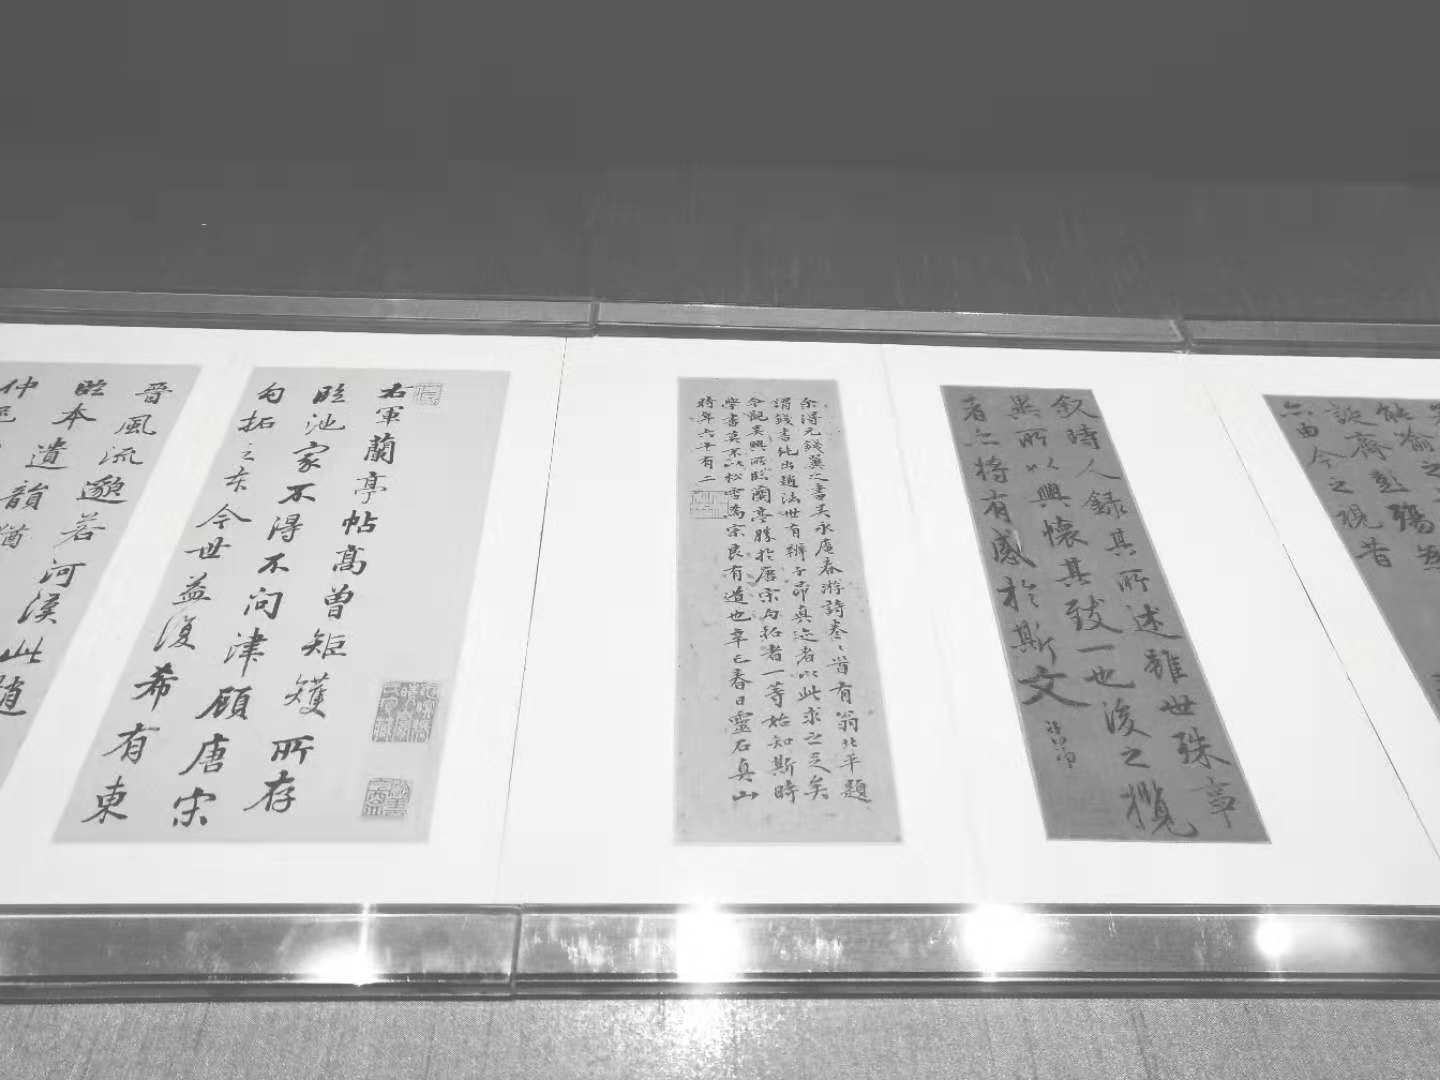 能喻之
談齊彭殤
六由今之視昔
叙時人録其所述雖世殊事
異所以興懷其致一也後之攬
者亦将有感於斯文
余得元錢翼之書吴永庵春游詩卷
昔有翁北平題
謂錢書純出趙法世有辨子昂真迹者以此求之足矣
今觀吴興所臨蘭亭勝於唐宋勾拓者一等始知斯時
學書莫不以松雪為宗良有道也辛巳春日靈石真山
時年六十有二
右軍蘭亭帖高曾矩矱所存
臨池家不得不問津顧唐宋
勾拓之本今世益復希有東
晉風流邈若河漢此趙
臨本遺韻猶
仲